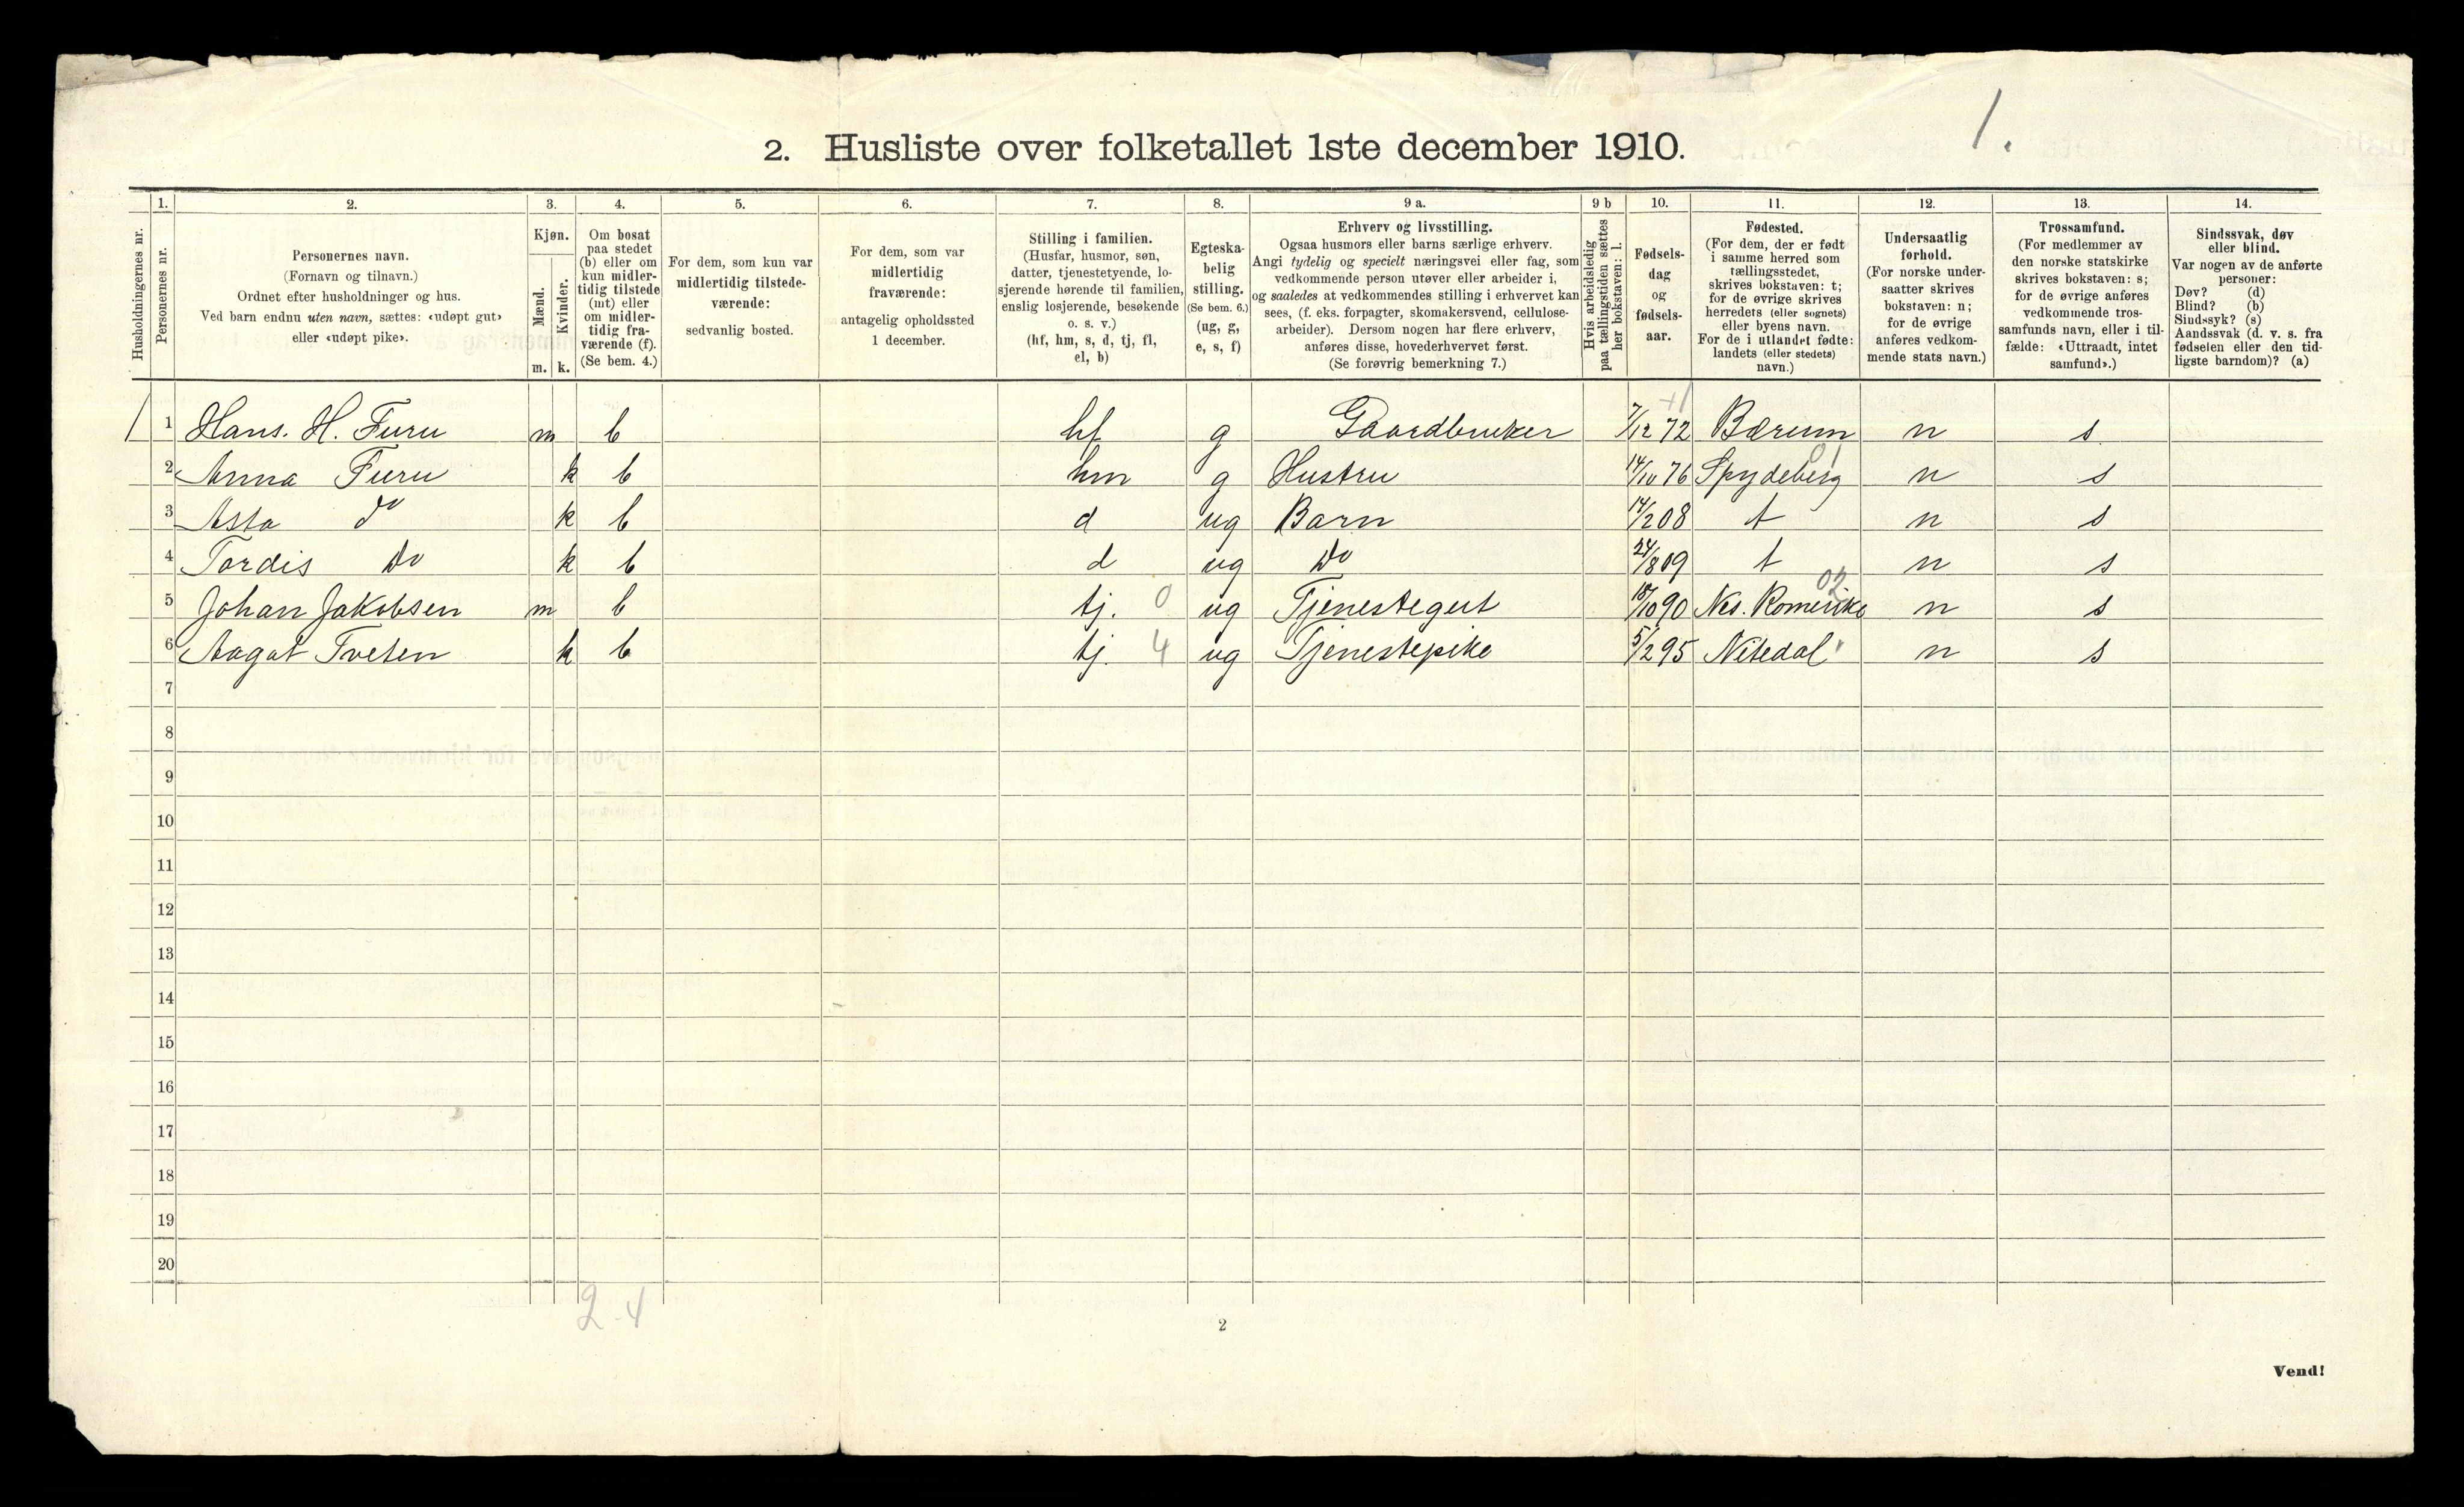 1.
2. Husliste over folketallet 1ste december 1910.
Husholdningernes nr.
1.
Personernes nr.
2.
Personernes navn.
(Fornavn og tilnavn.)
Ordnet efter husholdninger og hus.
Ved barn endnu uten navn, sættes: «udøpt gut»
eller «udøpt pike».
3.
Kjøn.
Mænd.
Kvinder.
m. k.
4.
Om bosat
paa stedet
(b) eller om
kun midler-
tidig tilstede
(mt) eller
om midler-
tidig fra-
værende (f).
(Se bem. 4.)
5.
For dem, som kun var
midlertidig tilstede-
værende:
sedvanlig bosted.
6.
For dem, som var
midlertidig
fraværende:
antagelig opholdssted
1 december.
7.
Stilling i familien.
(Husfar, husmor, søn,
datter, tjenestetyende, lo-
sjerende hørende til familien,
enslig losjerende, besøkende
o. s. v.)
(hf, hm, s, d, tj, fl,
el, b)
8.
Egteska-
belig
stilling.
(Se bem. 6.)
(ug, g,
e, s, f)
9 a.
Erhverv og livsstilling.
Ogsaa husmors eller barns særlige erhverv.
Angi tydelig og specielt næringsvei eller fag, som
vedkommende person utøver eller arbeider i,
og saaledes at vedkommendes stilling i erhvervet kan
sees, (f. eks. forpagter, skomakersvend, cellulose-
arbeider). Dersom nogen har flere erhverv,
anføres disse, hovederhvervet først.
(Se forøvrig bemerkning 7.)
9 b
Hvis arbeidsledig
paa tællingstiden sættes
her bokstaven: l.
10.
Fødsels-
dag
og
fødsels-
aar.
11.
Fødested.
(For dem, der er født
i samme herred som
tællingsstedet,
skrives bokstaven: t;
for de øvrige skrives
herredets (eller sognets)
eller byens navn.
For de i utlandet fødte:
landets (eller stedets)
navn.)
12.
Undersaatlig
forhold.
(For norske under-
saatter skrives
bokstaven: n;
for de øvrige
anføres vedkom-
mende stats navn.)
13.
Trossamfund.
(For medlemmer av
den norske statskirke
skrives bokstaven: s;
for de øvrige anføres
vedkommende tros-
samfunds navn, eller i til-
fælde: «Uttraadt, intet
samfund».)
14.
Sindssvak, døv
eller blind.
Var nogen av de anførte
personer:
Døv? (d)
Blind? (b)
Sindssyk? (s)
Aandssvak (d. v. s. fra
fødselen eller den tid-
ligste barndom)? (a)
1 1 Hans. H. Furu m b hf g Gaardbruker 7/12 72 Bærum n s
2 Anna Furu k b hm g Hustru 14/10 76 Spydeberg 01 n s
3 Asta do k b d ug Barn 14/2 08 t n s
4 Tordis Do k b d ug Do 24/8 09 t n s
5 Johan Jakobsen m b tj. 0 ug Tjenestegut 18/10 90 Nes. Romerike 02 n s
6 Aagot Tveten k b tj. 4 ug Tjenestepike 5/2 95 Nitedal n s
7
8
9
10
11
12
13
14
15
16
17
18
19
20
2-4
2
Vend!